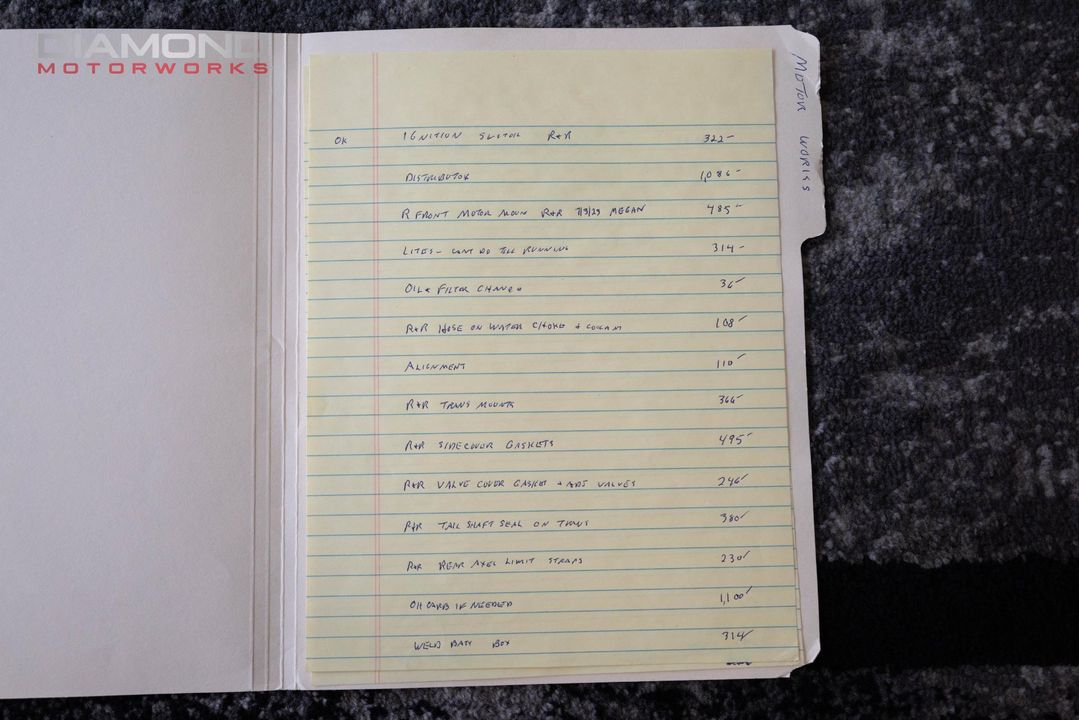 DIAMOND
MOTORWORKS
MOTOUR WORKS
OK IGNITION R&R 322-
DISTRIBUTOR 1,086-
R FRONT MOTOR MOUN R&R 7/9/29 MEGAN 485-
LITES- CANT DO TILL RUNNING 314-
OIL & FILTER CHANGE 36-
R&R HOSE ON WATER CHOKE + COOLANT 108-
ALIGNMENT 110-
R&R TRANS MOUNTS 366-
R&R SIDECOVER GASKETS 495-
R&R VALVE COVER GASKET + ADJ VALVES 246-
R&R TAIL SHAFT SEAL ON TRANS 380-
R&R REAR AXEL LIMIT STRAPS 230-
OH CARB IF NEEDED 1,100-
WELD BATT BOX 314-